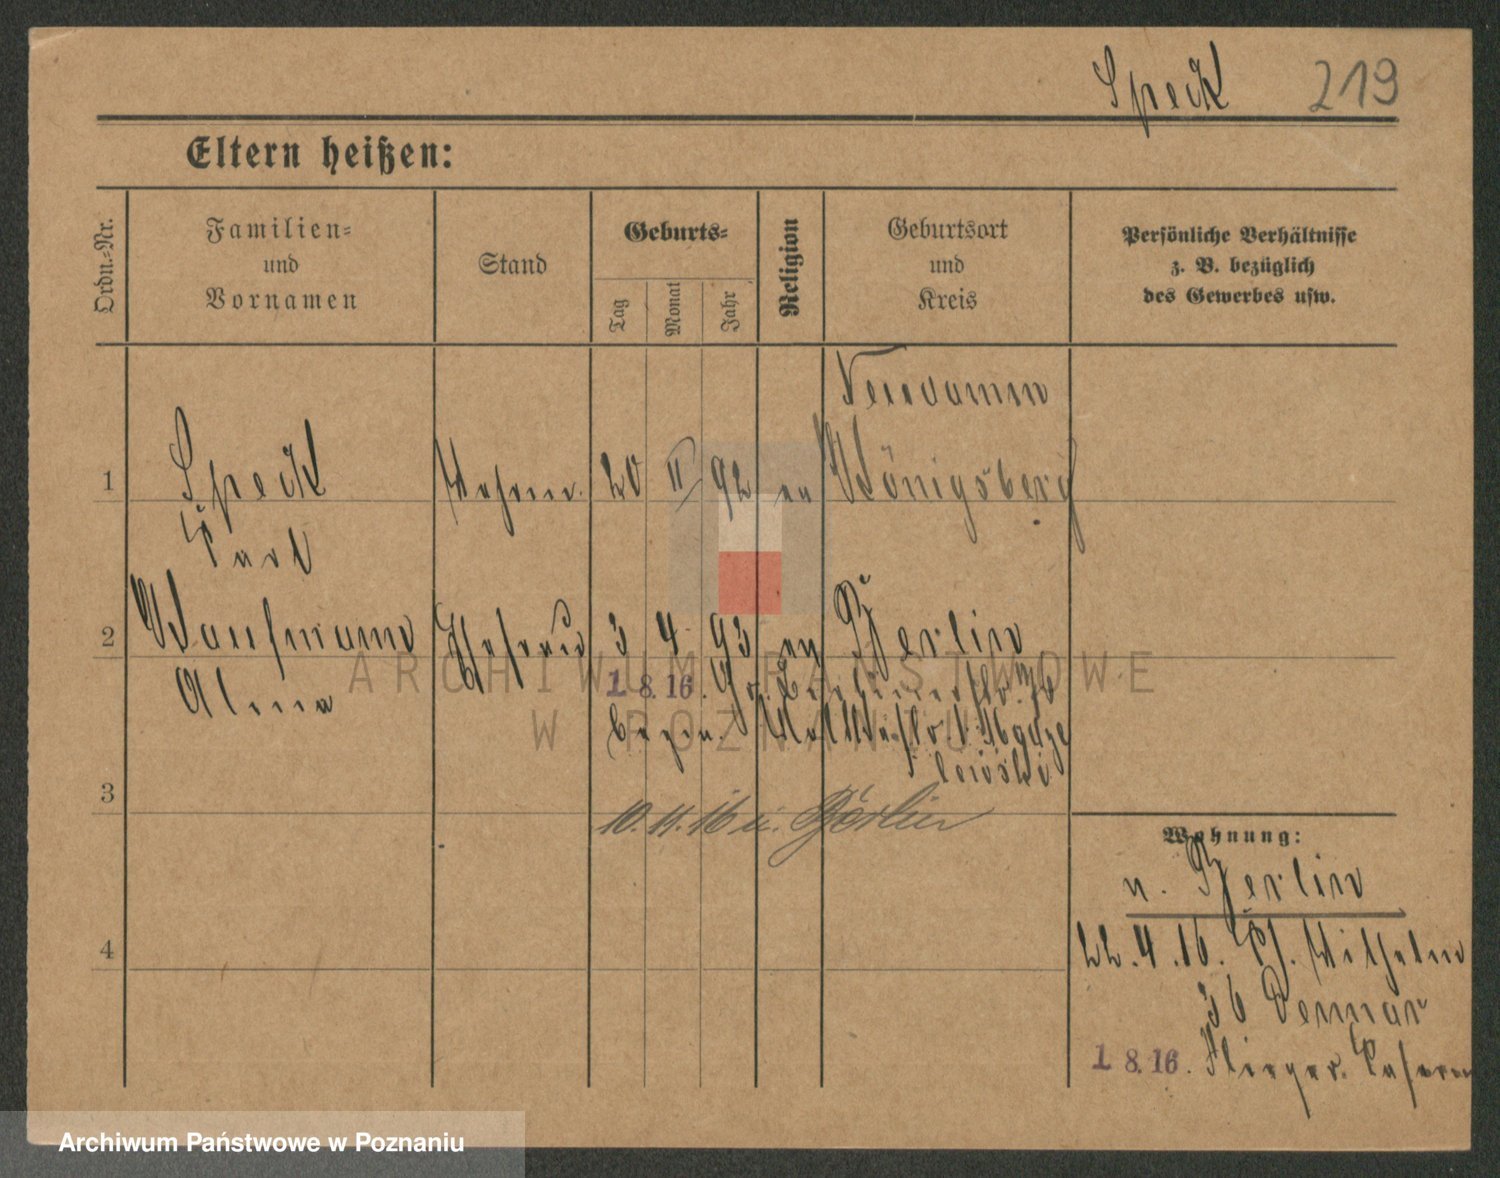 Speck 219
Eltern heißen:
Ordn.-Nr.
Familien-
und
Vornamen
Stand
Geburts-
Tag
Monat
Jahr
Religion
Geburtsort
und
Kreis
Persönliche Verhältnisse
z. B. bezüglich
des Gewerbes usw.
Neudamm
1 Speck 20 II 92 ev Königsberg
Karl
2 Kaufmann Ehefrau 3 4 93 ev Berlin
Alma
1 8. 16.
3
10. 11. 16 n. Berlin
Wohnung:
n. Berlin
4
22. 4. 16. Wilhelm
36
1 8. 16. Flieger
ARCHIWUM PAŃSTWOWE
W POZNANIU
Archiwum Państwowe w Poznaniu